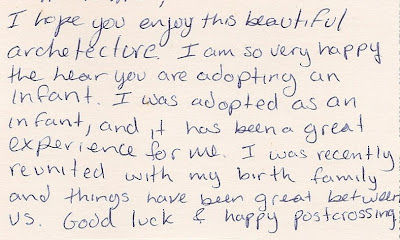 I hope you enjoy this beautiful
archetecture. I am so very happy
the hear you are adopting an
infant. I was adopted as an
infant, and it has been a great
experience for me. I was recently
reunited with my birth family
and things have been great between
us. Good luck & happy postcrossing